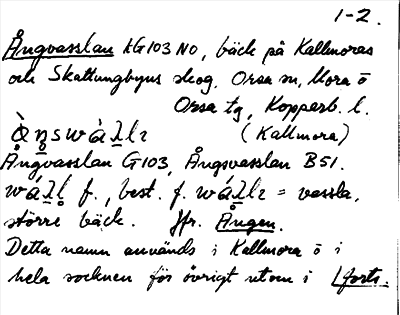 1-2.
Ångvasslan LG103 NO, bäck på Kallmoras
och Skattungbyns skog, Orsa sn, Mora o
Orsa tg, Kopparb. l.
(Kallmora)
Ångvasslan G103, Ångsvasslan B51.
f., best. f. = vassla,
större bäck. Jfr. Ången.
Detta namn används i Kallmora o i
hela socknen för övrigt utom i forts.